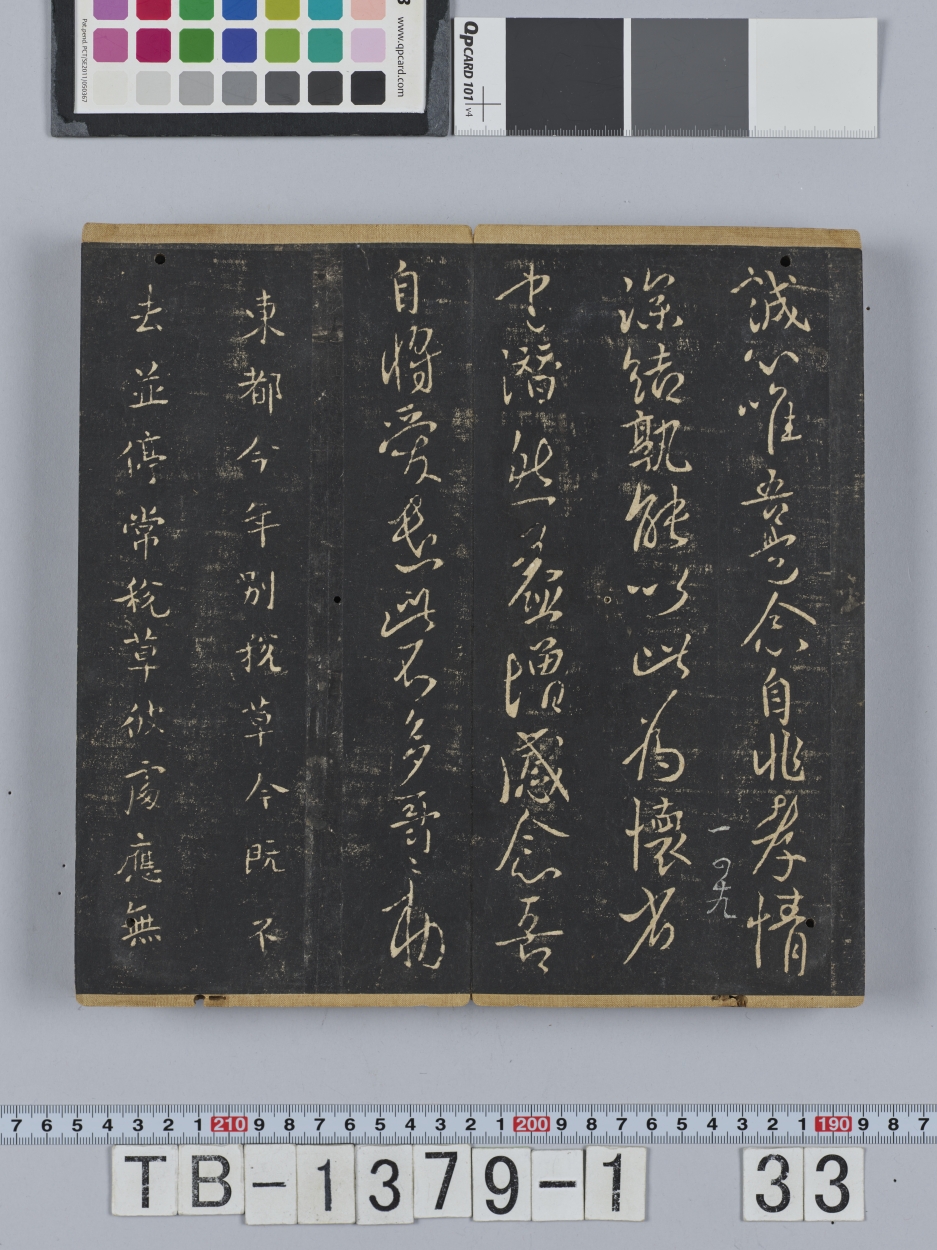 www.qpcard.com
Pat.pend. PCT/SE2011/050367
QPCARD 101 v4
誠心唯吾念自非孝情
深結孰能以此為懷省
書潸然益增感念吾
自將愛此不多哥〻勅
東都今年別稅草今既不
去並停常稅草彼處應無
一の九
7 6 5 4 3 2 1 210 9 8 7 6 5 4 3 2 1 200 9 8 7 6 5 4 3 2 1 190 9 8 7
TB-1379-1 33